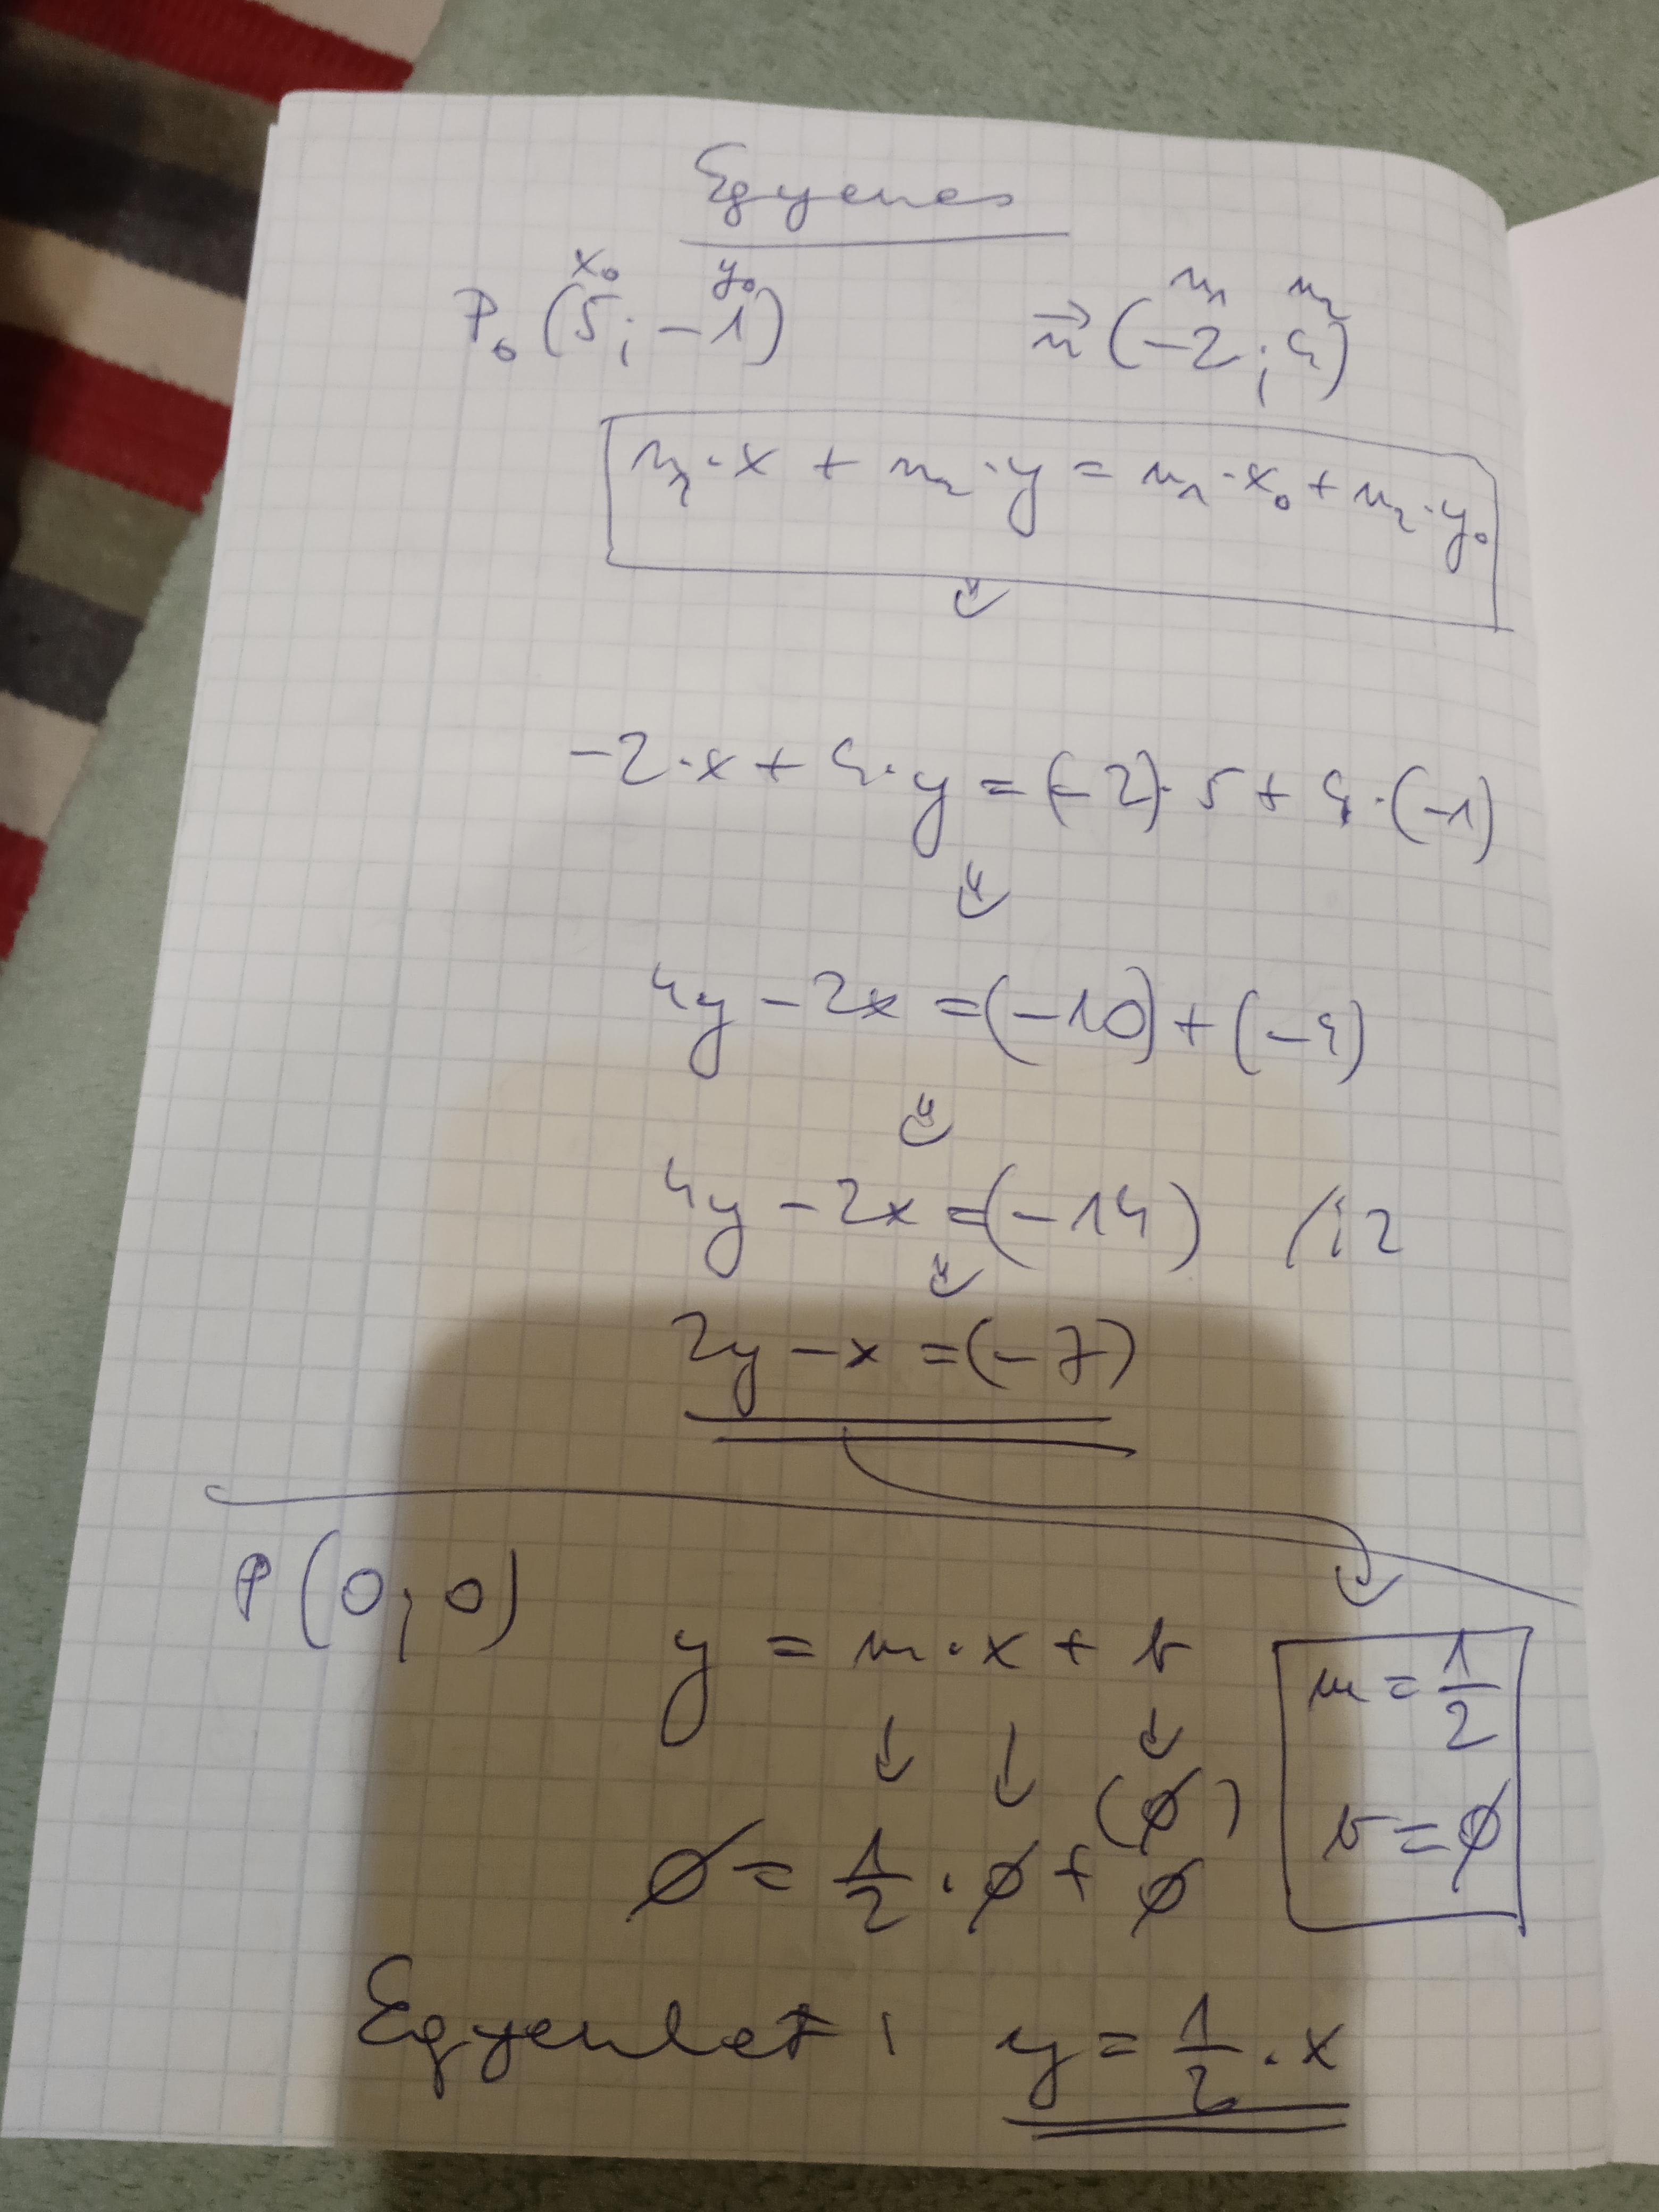 Egyenes
x₀ y₀ n₁ n₂
P₀ (5; -1) n⃗ (-2; 4)
n₁·x + n₂·y = n₁·x₀ + n₂·y₀
-2·x + 4·y = (-2)·5 + 4·(-1)
4y - 2x = (-10) + (-4)
4y - 2x = (-14) /:2
2y - x = (-7)
P(0; 0)
y = m·x + b
m = 1/2
(∅)
b = ∅
∅ = 1/2 · ∅ + ∅
Egyenlet: y = 1/2 · x